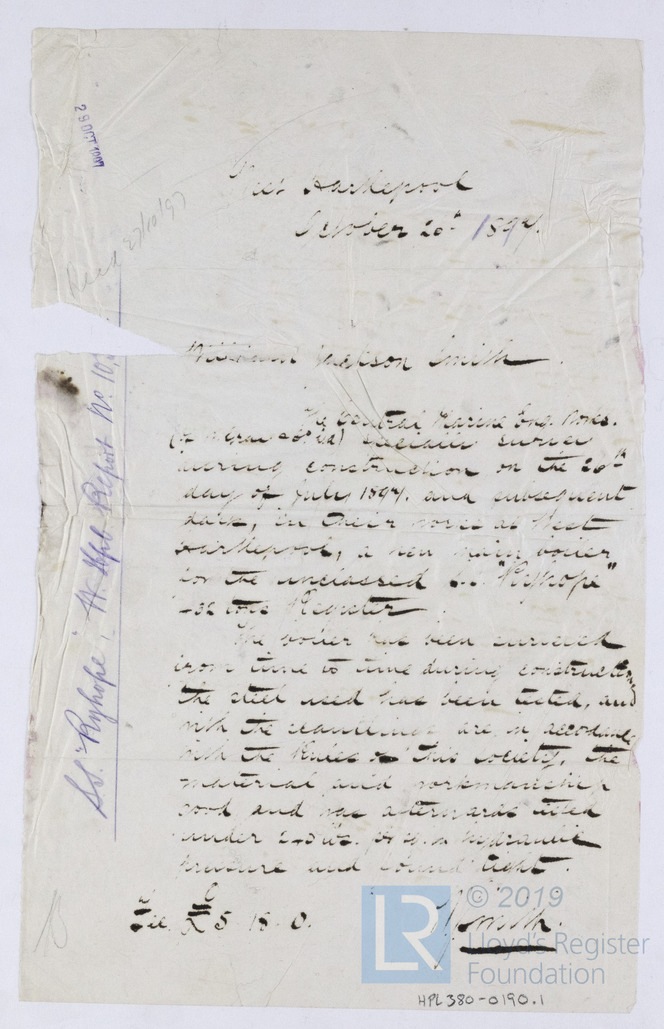 West Hartlepool
October 20th 1897.
William Jackson Smith.
The Central Marine Eng. Works.
(of W. Gray & Co Ltd) Specially survey
during construction on the 20th
day of July 1897. and subsequent
date, in their works at West
Hartlepool, a new main boiler
for the unclassed S.S. "Ryhope"
tons Register
The boiler has been surveyed
from time to time during construction
the steel used has been tested, and
with the scantlings are in accordance
with the Rules of this society, the
material and workmanship
good and was afterwards tested
under lbs. pr sq. in hydraulic
pressure and found tight.
Fee £5. 18. 0.
Smith.
S.S. "Ryhope", W. Hpl Report No. 10,
Recd 23/10/97
29 OCT
© 2019
LR
Lloyd's Register
Foundation
HPL380-0190.1